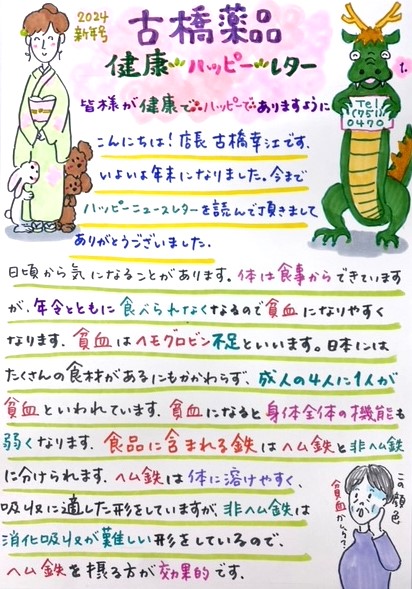 2024
新年号
古橋薬品
健康ハッピーレター
1.
皆様が健康でハッピーでありますように
Tel
(75)
0470
こんにちは!店長 古橋幸江です。
いよいよ年末になりました。今まで
ハッピーニュースレターを読んで頂きまして
ありがとうございました。
日頃から気になることがあります。体は食事からできています
が、年令とともに食べられなくなるので貧血になりやすく
なります。貧血はヘモグロビン不足といいます。日本には
たくさんの食材があるにもかかわらず、成人の4人に1人が
貧血といわれています。貧血になると身体全体の機能も
弱くなります。食品に含まれる鉄はヘム鉄と非ヘム鉄
に分けられます。ヘム鉄は体に溶けやすく、
吸収に適した形をしていますが、非ヘム鉄は
消化吸収が難しい形をしているので、
ヘム鉄を摂る方が効果的です。
この顔色
貧血かしら?